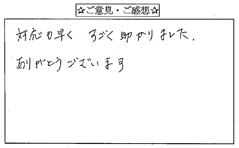 ☆ご意見・ご感想☆
対応も早く すごく助かりました。
ありがとうございます